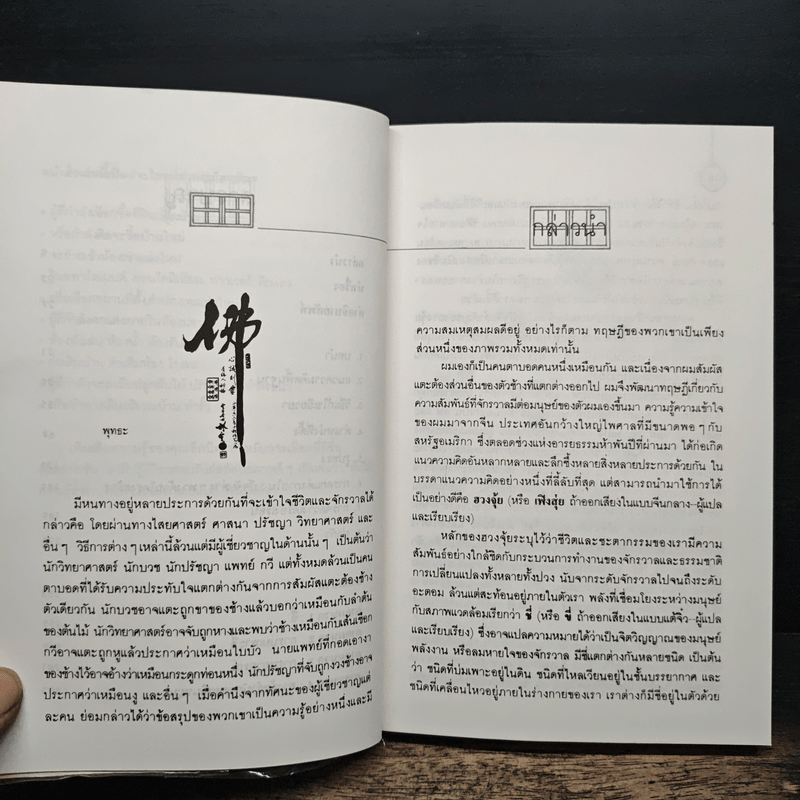 佛
พุทธะ
มีหนทางอยู่หลายประการด้วยกันที่จะเข้าใจชีวิตและจักรวาลได้
กล่าวคือ โดยผ่านทางไสยศาสตร์ ศาสนา ปรัชญา วิทยาศาสตร์ และ
อื่นๆ วิธีการต่างๆ เหล่านี้ล้วนแต่มีผู้เชี่ยวชาญในด้านนั้นๆ เป็นต้นว่า
นักวิทยาศาสตร์ นักบวช นักปรัชญา แพทย์ กวี แต่ทั้งหมดล้วนเป็นคน
ตาบอดที่ได้รับความประทับใจแตกต่างกันจากการสัมผัสแตะต้องช้าง
ตัวเดียวกัน นักบวชอาจแตะถูกขาของช้างแล้วบอกว่าเหมือนกับลำต้น
ของต้นไม้ นักวิทยาศาสตร์อาจจับถูกหางและพบว่าช้างเหมือนกับเส้นเชือก
กวีอาจแตะถูกหูแล้วประกาศว่าเหมือนใบบัว นายแพทย์ที่กอดเอางา
ของช้างไว้อาจอ้างว่าเหมือนกระดูกท่อนหนึ่ง นักปรัชญาที่จับถูกงวงช้างอาจ
ประกาศว่าเหมือนงู และอื่นๆ เมื่อคำนึงจากทัศนะของผู้เชี่ยวชาญแต่
ละคน ย่อมกล่าวได้ว่าข้อสรุปของพวกเขาเป็นความรู้อย่างหนึ่งและมี
กล่าวนำ
ความสมเหตุสมผลดีอยู่ อย่างไรก็ตาม ทฤษฎีของพวกเขาเป็นเพียง
ส่วนหนึ่งของภาพรวมทั้งหมดเท่านั้น
ผมเองก็เป็นคนตาบอดคนหนึ่งเหมือนกัน และเนื่องจากผมสัมผัส
แตะต้องส่วนอื่นของตัวช้างที่แตกต่างออกไป ผมจึงพัฒนาทฤษฎีเกี่ยวกับ
ความสัมพันธ์ที่จักรวาลมีต่อมนุษย์ของตัวผมเองขึ้นมา ความรู้ความเข้าใจ
ของผมมาจากจีน ประเทศอันกว้างใหญ่ไพศาลที่มีขนาดพอๆ กับ
สหรัฐอเมริกา ซึ่งตลอดช่วงแห่งอารยธรรมห้าพันปีที่ผ่านมา ได้ก่อเกิด
แนวความคิดอันหลากหลายและลึกซึ้งหลายสิ่งหลายประการด้วยกัน ใน
บรรดาแนวความคิดอย่างหนึ่งที่ลี้ลับที่สุด แต่สามารถนำมาใช้การได้
เป็นอย่างดีคือ ฮวงจุ้ย (หรือ เฟิงสุ่ย ถ้าออกเสียงในแบบจีนกลาง–ผู้แปล
และเรียบเรียง)
หลักของฮวงจุ้ยระบุไว้ว่าชีวิตและชะตากรรมของเรามีความ
สัมพันธ์อย่างใกล้ชิดกับกระบวนการทำงานของจักรวาลและธรรมชาติ
การเปลี่ยนแปลงทั้งหลายทั้งปวง นับจากระดับจักรวาลไปจนถึงระดับ
อะตอม ล้วนแต่สะท้อนอยู่ภายในตัวเรา พลังที่เชื่อมโยงระหว่างมนุษย์
กับสภาพแวดล้อมเรียกว่า ชี่ (หรือ ขี่ ถ้าออกเสียงในแบบแต้จิ๋ว–ผู้แปล
และเรียบเรียง) ซึ่งอาจแปลความหมายได้ว่าเป็นจิตวิญญาณของมนุษย์
พลังงาน หรือลมหายใจของจักรวาล มีชี่แตกต่างกันหลายชนิด เป็นต้น
ว่า ชนิดที่บ่มเพาะอยู่ในดิน ชนิดที่ไหลเวียนอยู่ในชั้นบรรยากาศ และ
ชนิดที่เคลื่อนไหวอยู่ภายในร่างกายของเรา เราต่างก็มีชี่อยู่ในตัวด้วย